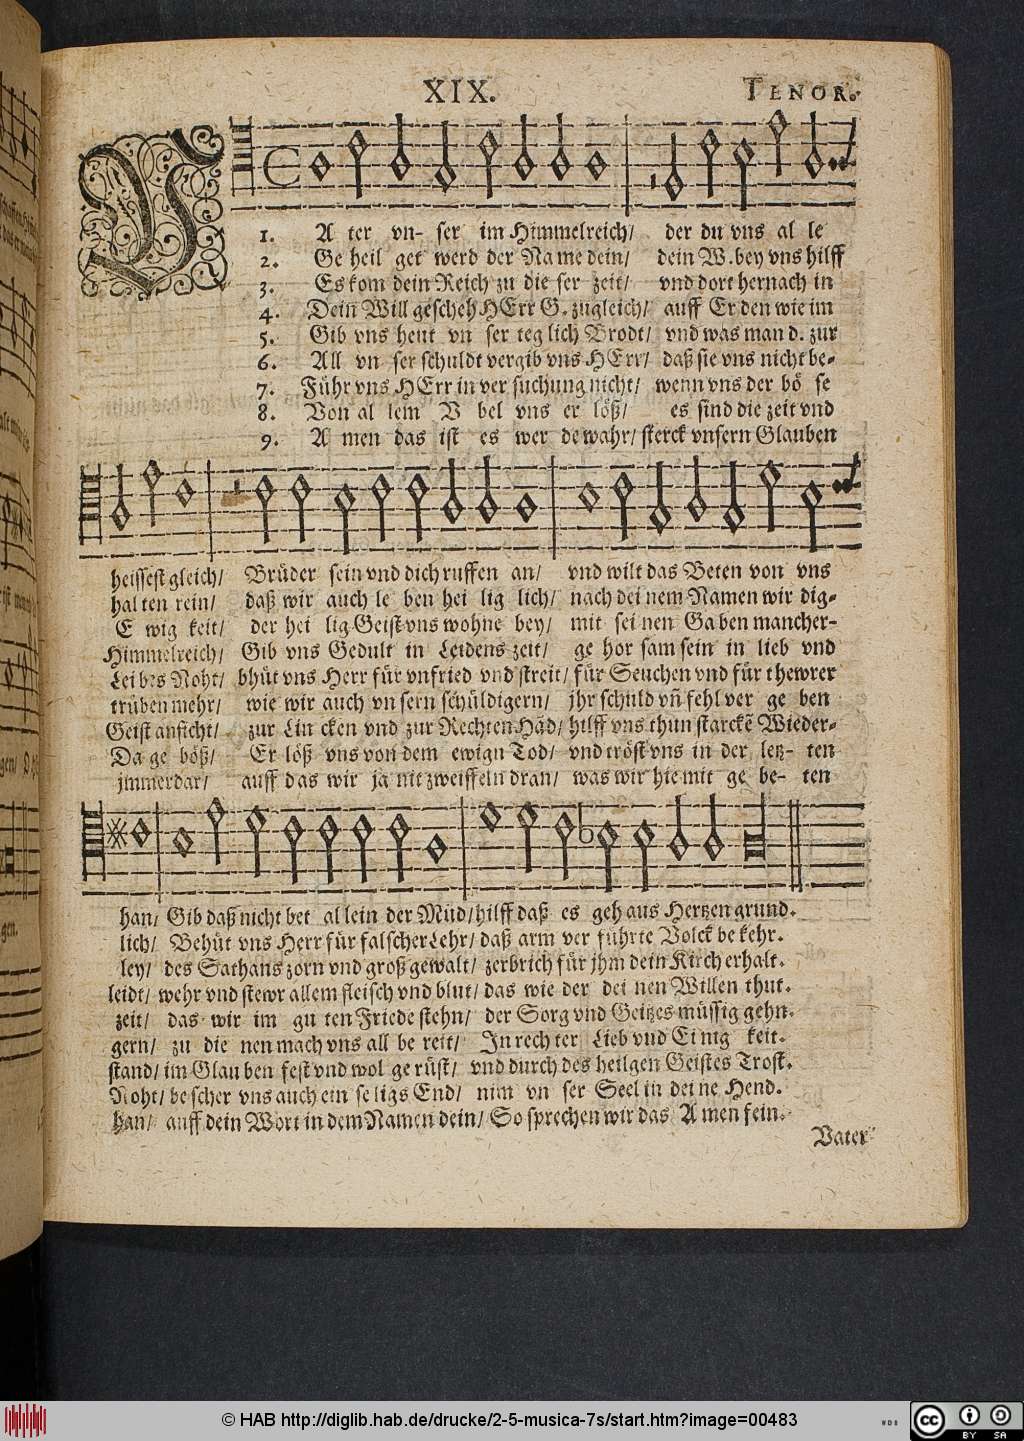 XIX.
TENOR.
V
1. A ter vn- ser im Himmelreich/ der du vns al le
2. Ge heil get werd der Na me dein/ dein W. bey vns hilff
3. Es kom dein Reich zu die ser zeit/ vnd dort hernach in
4. Dein̄ Will gescheh HErr G. zugleich/ auff Er den wie im
5. Gib vns heut vn ser teg lich Brodt/ vnd was man d. zur
6. All vn ser schuldt vergib vns HErr/ daß sie vns nicht be-
7. Führ vns HErr in ver suchung nicht/ wenn vns der bö se
8. Von al lem V bel vns er löß/ es sind die zeit vnd
9. A men das ist es wer de wahr/ sterck vnsern Glauben
heissest gleich/ Brüder sein vnd dich ruffen an/ vnd wilt das Beten von vns
hal ten rein/ daß wir auch le ben hei lig lich/ nach dei nem Namen wir dig-
E wig keit/ der hei lig Geist vns wohne bey/ mit sei nen Ga ben mancher-
Himmelreich/ Gib vns Gedult in Leidens zeit/ ge hor sam sein in lieb vnd
Lei bes Noht/ bhüt vns Herr für vnfried vnd streit/ für Seuchen vnd für thewrer
trüben mehr/ wie wir auch vn sern schüldigern/ jhr schuld vn̄ fehl ver ge ben
Geist anficht/ zur Lin cken vnd zur Rechten Hād/ hilff vns thun starckē Wieder-
Da ge böß/ Er löß vns von dem ewign Tod/ vnd tröst vns in der letz- ten
jmmerdar/ auff das wir ja nit zweiffeln dran/ was wir hie mit ge be- ten
han/ Gib daß nicht bet al lein der Müd/ hilff daß es geh aus Hertzen grund.
lich/ Behüt vns Herr für falscher Lehr/ daß arm ver führte Volck be kehr.
ley/ des Sathans zorn vnd groß gewalt/ zerbrich für jhm dein Kirch erhalt.
leidt/ wehr vnd stewr allem fleisch vnd blut/ das wie der dei nen Willen thut.
zeit/ das wir im gu ten Friede stehn/ der Sorg vnd Geitzes müssig gehn.
gern/ zu die nen mach vns all be reit/ In rech ter Lieb vnd Ei nig keit.
stand/ im Glau ben fest vnd wol ge rüst/ vnd durch des heilgen Geistes Trost.
Noht/ be scher vns auch ein se ligs End/ nim vn ser Seel in dei ne Hend.
han/ auff dein Wort in dem Namen dein/ So sprechen wir das A men fein.
Vater
© HAB http://diglib.hab.de/drucke/2-5-musica-7s/start.htm?image=00483
WDB
cc BY SA